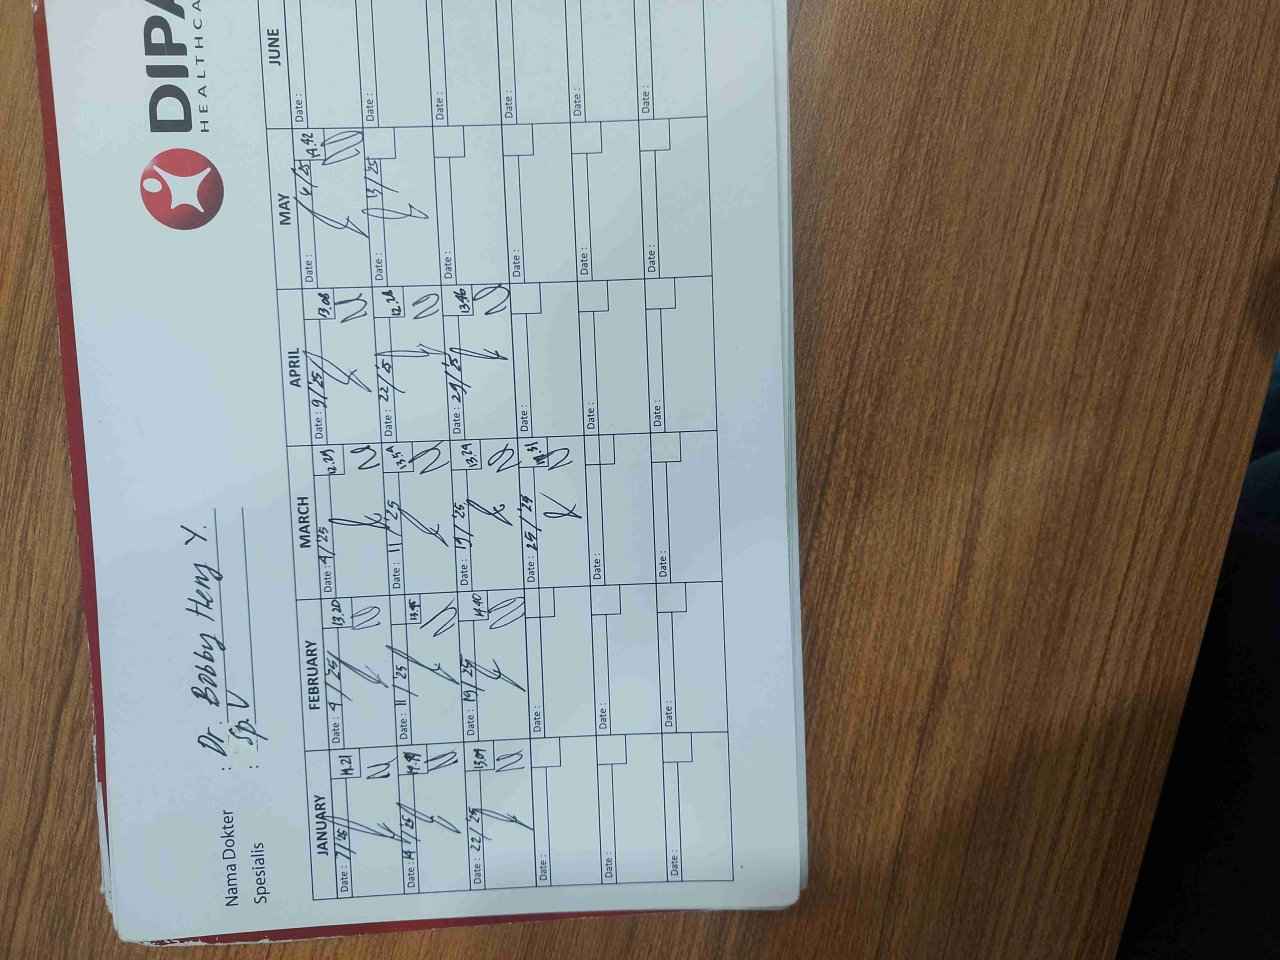 DIPA
HEALTHCA
Nama Dokter : Dr. Bobby Hery Y.
Spesialis : Sp. U
JANUARY FEBRUARY MARCH APRIL MAY JUNE
Date : 7/'25 14.21 Date : 4/'25 13.20 Date : 4/'25 12.29 Date : 9/'25 13.08 Date : 6/'25 14.42 Date :
Date : 14/'25 Date : 11/'25 13.45 Date : 11/'25 Date : 22/'25 12.28 Date : 13/'25 Date :
Date : 22/'25 13.09 Date : 19/'25 14.40 Date : 19/'25 13.29 Date : 29/'25 13.46 Date : Date :
Date : Date : Date : 25/'25 Date : Date : Date :
Date : Date : Date : Date : Date : Date :
Date : Date : Date : Date : Date : Date :